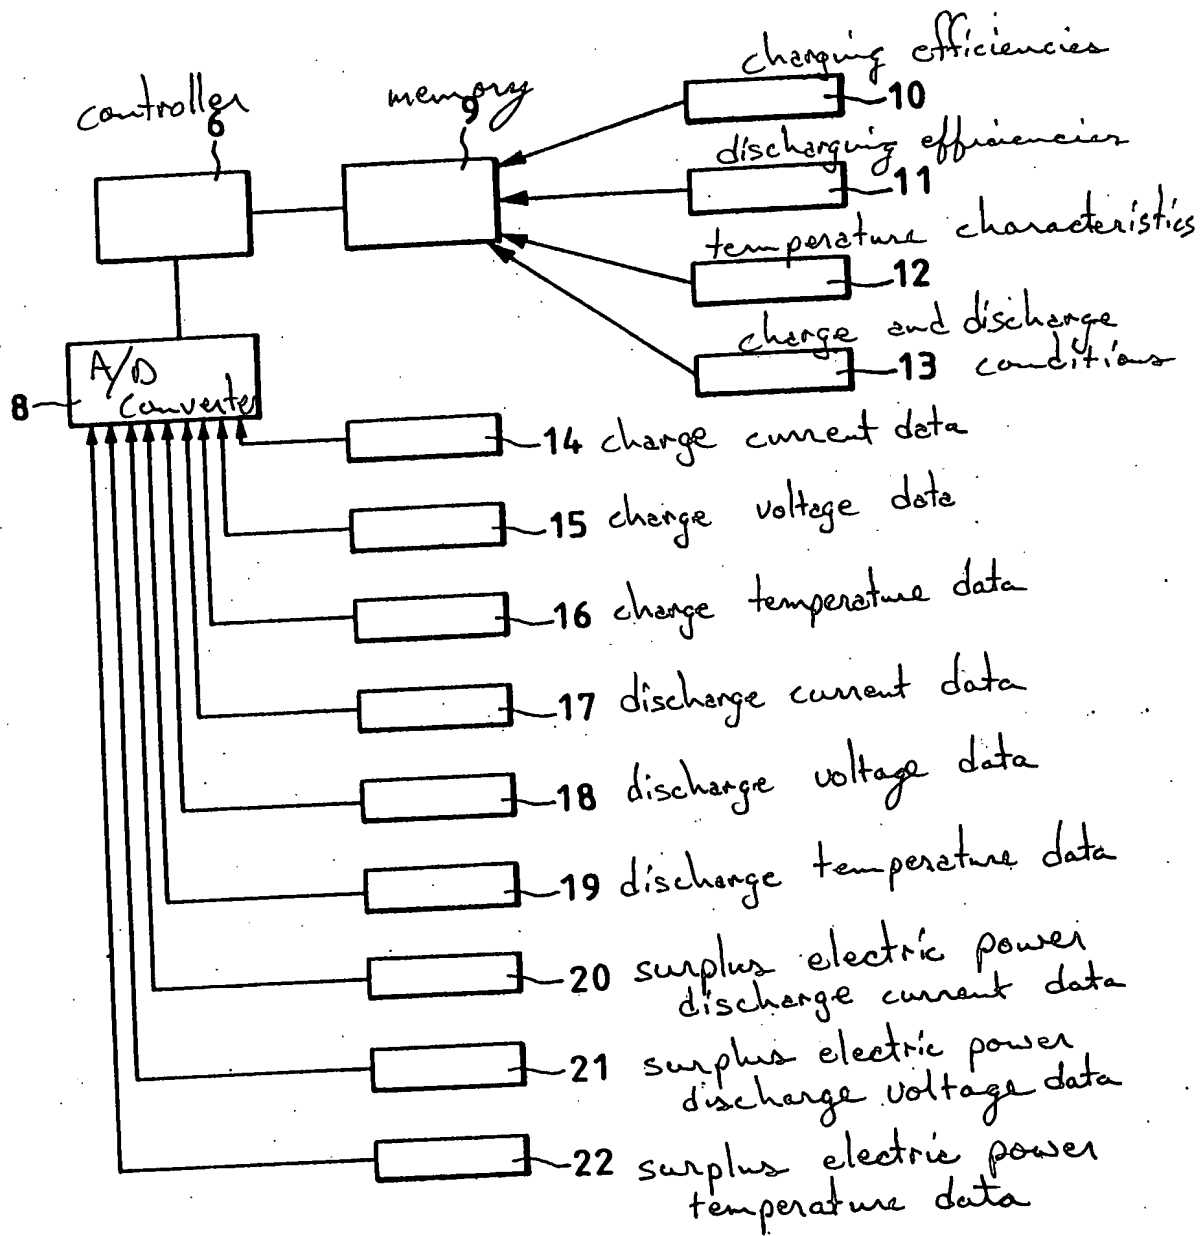 charging efficiencies
controller
memory
6
9
10
discharging efficiencies
11
temperature characteristics
12
charge and discharge
13 conditions
A/D
converter
8
14 charge current data
15 charge voltage data
16 charge temperature data
17 discharge current data
18 discharge voltage data
19 discharge temperature data
20 surplus electric power
discharge current data
21 surplus electric power
discharge voltage data
22 surplus electric power
temperature data